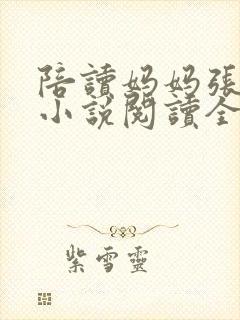 陪讀媽媽張
小說閱讀全
紫雪靈